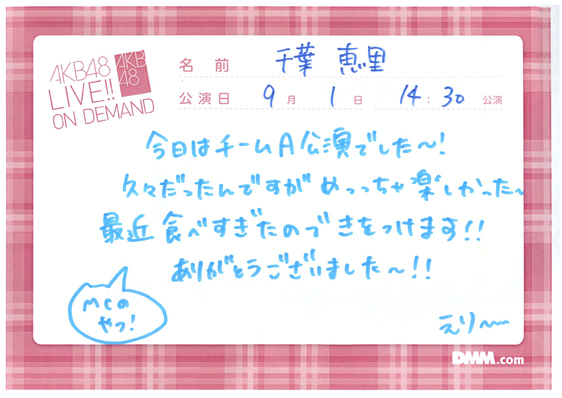 AKB48
LIVE!!
ON DEMAND
AKB
48
名前 千葉 恵里
公演日 9月 1日 14:30 公演
今日はチームA公演でした〜!
久々だったんですがめっっちゃ楽しかった〜
最近食べすぎたのできをつけます!!
ありがとうございました〜!!
MCの
やつ!
えり〜
DMM.com